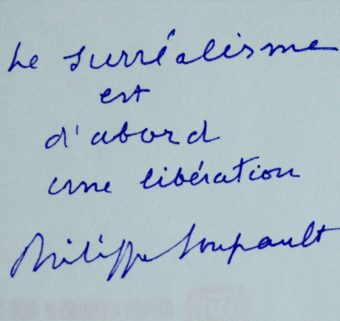 Le surréalisme
est
d'abord
une libération
Philippe Soupault